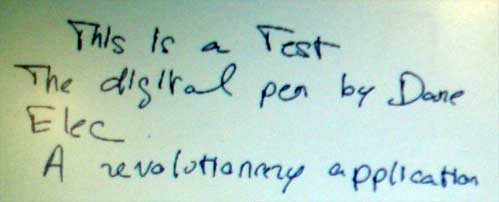 This is a Test
The digital pen by Dane
Elec
A revolutionnary application